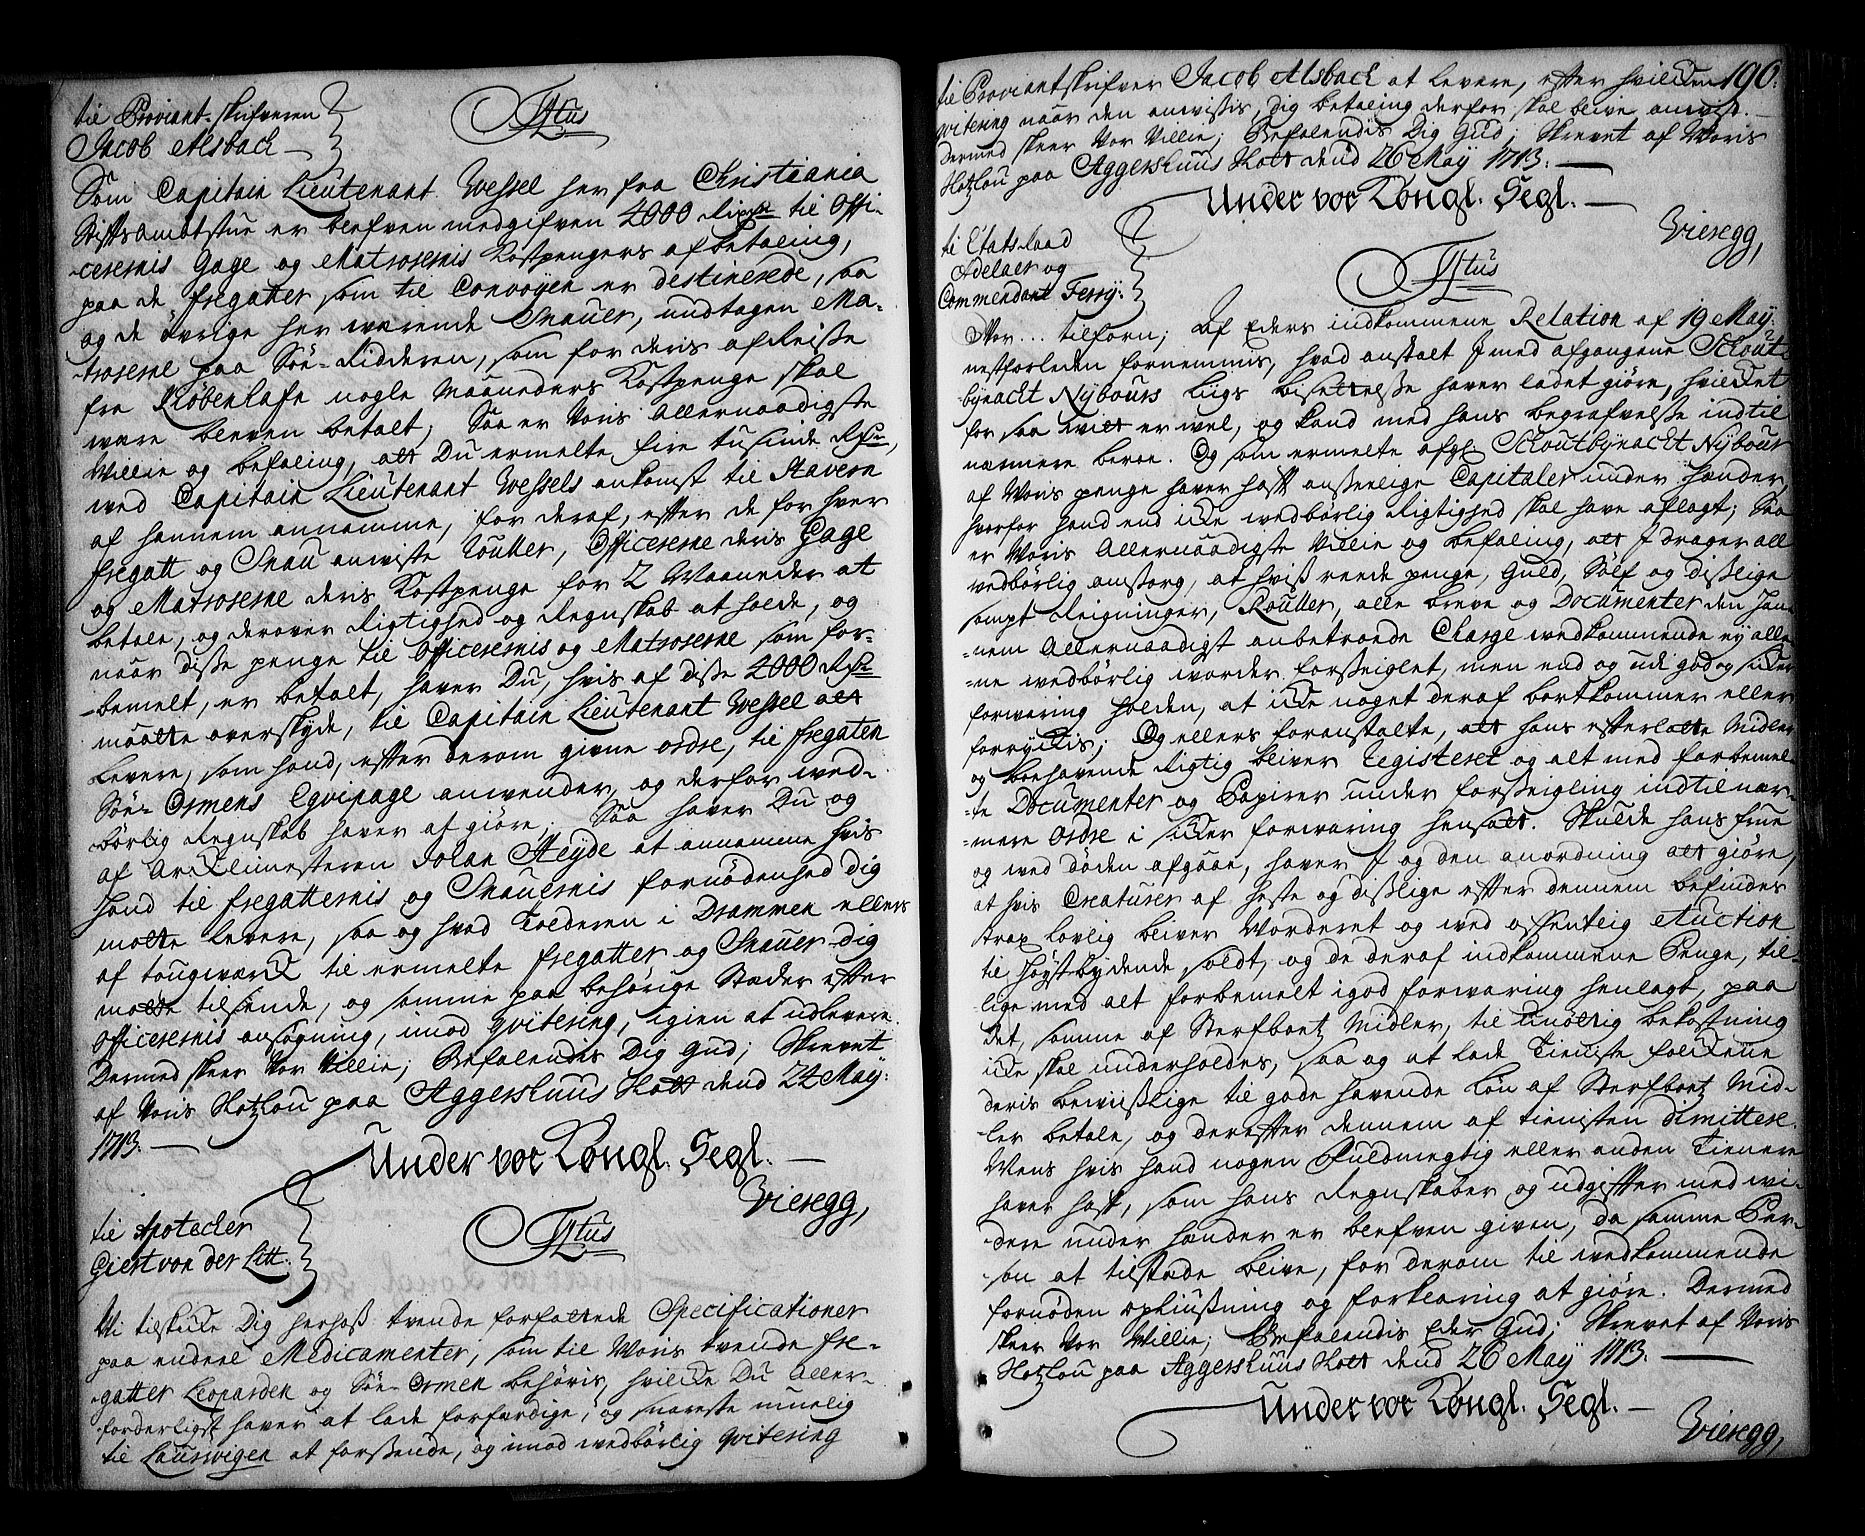 til Proviant-skrifveren
Jacob Alsbach —
Tittus
Som Capitain Lieutenant Wessel her fra Christiania
Stiftsambtstue er blefven medgifven 4000 Rixdr til Offi-
cerernis Gage og Matrosernis Kostpengers afbetaling,
paa de fregatter, som til Convoyen er destinerede, saa
og de öfrige her wærende Snauer, undtagen Ma-
troserne paa Söe-Ridderen, som for deris afReisse
fra Kiøbenhafn nogle Maaneders Kostpenge skal
være blefven betalt, Saa er Voris Allernaadigste
Villie og befaling, att Du ermelte fire tusinde Rdr,
ved Capitain Lieutenant Wessels ankomst til Stavern
af hannem annamme, for deraf, efter de for hver
fregatt og Snau anviste Roller, Officererne deris Gage
og Matroserne deris Kostpenge for 2 Maaneder at
betale, og derover Rigtighed og Regnskab at holde, og
naar disse penge til Officerernis og Matroserne som for-
bemelt, er betalt, haver Du, hvis af disse 4000 Rdr
maatte overskyde, til Capitain Lieutenant Wessel att
levere, som hand, efter derom givne ordre, til fregaten
Söe-Ormens Eqvipage anvender, og derfor wed-
börlig Regnskab haver at giøre; Saa haver Du og
af Artellimesteren Johan Heyde at annamme hvis
hand til fregatternis og Snauernis fornødenhed dig
motte levere, saa og hvad Tolderen i Drammen ellers
af tougværck til ermelte fregatter og Snauer dig
motte tilsende, og samme paa behörige Stæder efter
Officerernis ansøgning, imod qvitering, igien at udlevere.
Dermed skeer Vor Villie; Befalendis Dig Gud; Skrevet
af Voris Slotzlou paa Aggershuus Slott dend 24 May:
1713. —
Under vor Kongl. Segl. —
Vieregg,
til Apotecher
Giert von der Litt.
Tittus
Vi tilskicke Dig herhoß tvende forfattede Specificationer
paa endeel Medicamenter, som til Voris tvende fre-
gatter Leoparden og Söe-Ormen behøvis, hvilcke Du Aller-
forderligst haver at lade forfærdige, og snareste muelig
til Laurvigen at forsende, og imod wedbörlig Qvitering
196.
til Proviantskrifver Jacob Alsbach at levere, efter hvilcken
qvitering naar den anvisis, Dig betaling derfor skal blive anvist.
Dermed skeer Vor Villie; Befalendis Dig Gud; Skrevet af Voris
Slotzlou paa Aggershuus Slott dend 26 May 1713. —
Under vor Kongl. Segl. —
Vieregg,
til Etatsraad
Adelaer og
Commendant Ferry:
Tittus
Vor... tilforn; Af Eders indkommene Relation af 19 May
nestforleden fornemmis, hvad anstalt I med afgangene Schout
bynacht Nybours Liigs bisettelße haver ladet giøre, hvilcket
for saa wit er vel, og kand med hans begrafvelße indtil
nærmere beroe. Og som ermelte afgl. Schoutbynacht Nybour
af Voris penge haver hafft anseenlige Capitaler under hænder,
hvorfor hand end icke wedbörlig Rigtighed skal have aflagt; Saa
er Voris Allernaadigste Villie og befaling, att I drager all
wedbörlig omsorg, at hvis reede penge, Guld, Sölf og dißlige
sampt Reigninger, Roller, alle breve og Documenter den han-
nem Allernaadigst anbetroede Charge wedkommende ey alle-
ne wedbörlig vorder forseiglet, men end og udi god og sicker
forvaring holden, at icke noget deraf bortkommer eller
forryckis; Og ellers foranstalte, att hans efterlatte Midler
og boehavende Rigtig bliver Registeret og alt med forbemel-
te Documenter og Papirer under forseigling indtil nær-
mere ordre i sicker forvaring hensatt. Skulde hans frue
og wed døden afgaae, haver I og den anordning att giøre,
at hvis Creaturer af heste og dißlige efter dennem befindes
strax lovlig bliver Vorderet og wed offentlig Auction
til höystbydende soldt, og de deraf indkommene Penge, til-
lige med alt forbemelt i god forvaring henlagt, paa
det, somme af Sterfboetz Midler, til unøttig bekostning
icke skal underholdes, saa og at lade Tieniste folckene
deris bewißlige til gode havende løn af Sterfboetz Mid-
ler betale, og derefter dennem af tienisten dimittere.
Mens hvis hand nogen Fuldmegtig eller anden Tienere
haver hafft, som hans Regnskaber og udgifter med wi-
dere under hænder er blefven given, da samme Per-
son at tilstæde blive, for derom til wedkommende
fornøden oplysning og forklaring at giøre. Dermed
skeer Vor Villie; Befalendis Eder Gud; Skrevet af Voris
Slotzlou paa Aggershuus Slott dend 26 May 1713. —
Under vor Kongl. Segl. —
Vieregg,